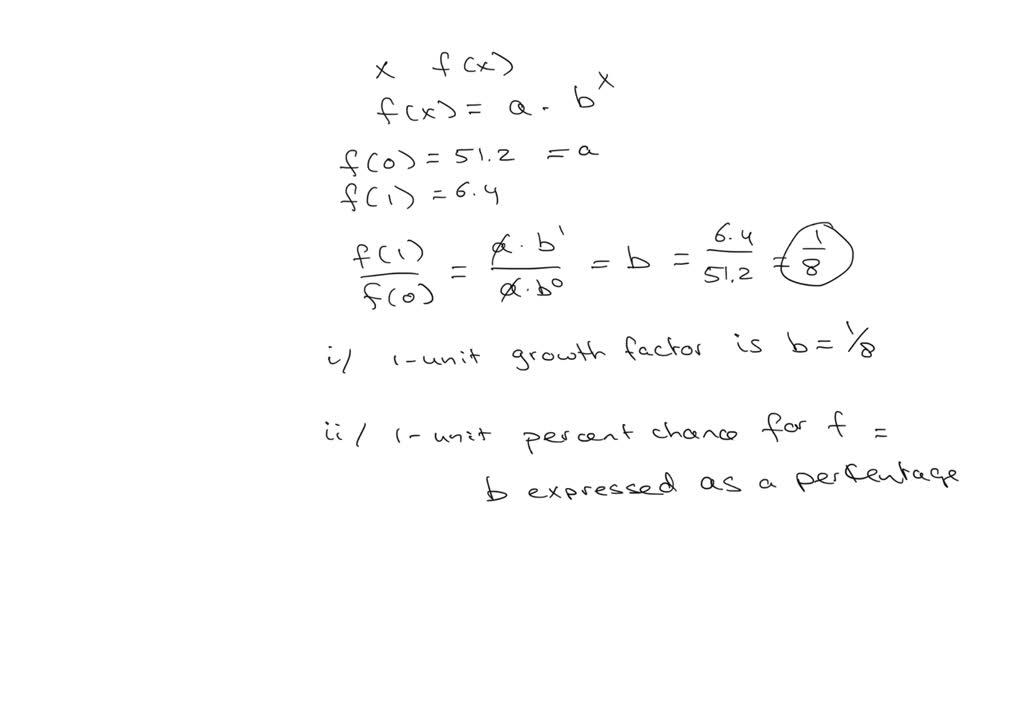 x f(x)
f(x) = a · b^x
f(0) = 51.2 = a
f(1) = 6.4
f(1)/f(0) = a · b^1 / a · b^0 = b = 6.4/51.2 = 1/8
i/ 1-unit growth factor is b = 1/8
ii/ 1-unit percent chance for f =
b expressed as a percentage